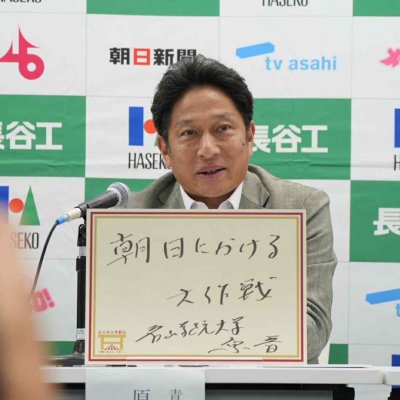 HASEKO
HASEKO
朝日新聞
tv asahi
長谷工
HASEKO
長谷工
HASEKO
長谷工
朝日にかける
大作戦
青山学院大学
原 晋
原